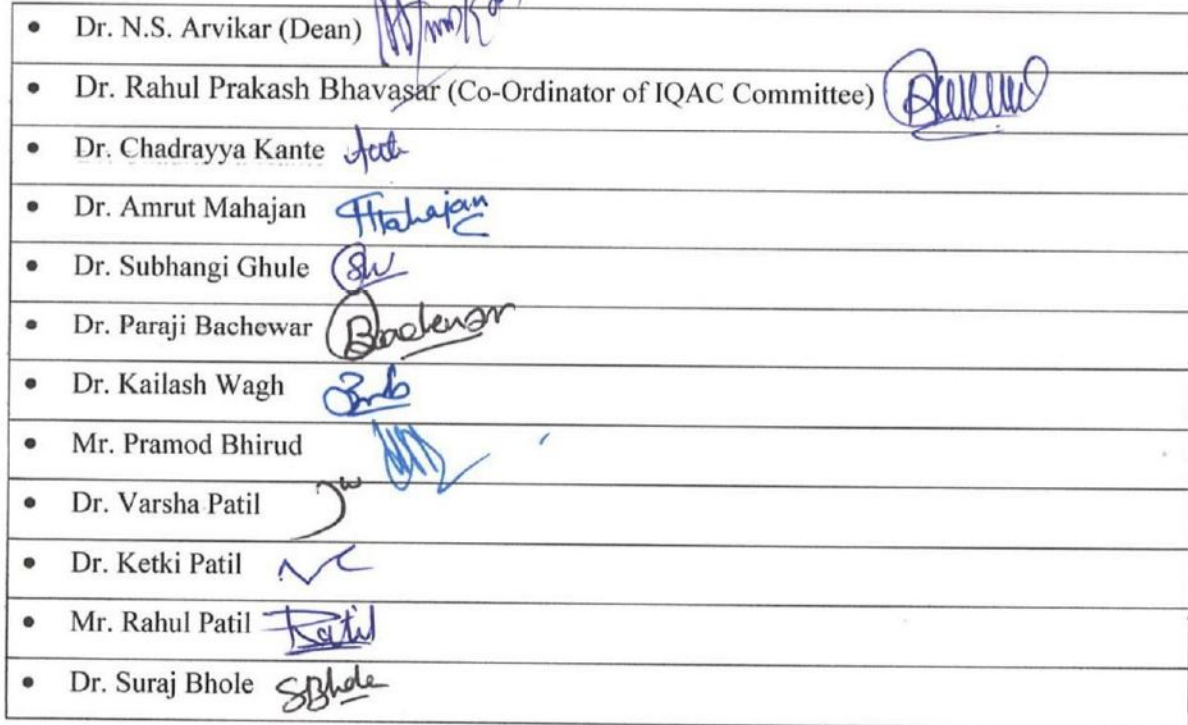 • Dr. N.S. Arvikar (Dean)
• Dr. Rahul Prakash Bhavasar (Co-Ordinator of IQAC Committee)
• Dr. Chadrayya Kante
• Dr. Amrut Mahajan Mahajan
• Dr. Subhangi Ghule
• Dr. Paraji Bachewar Bachewar
• Dr. Kailash Wagh
• Mr. Pramod Bhirud
• Dr. Varsha Patil
• Dr. Ketki Patil
• Mr. Rahul Patil Patil
• Dr. Suraj Bhole SBhole